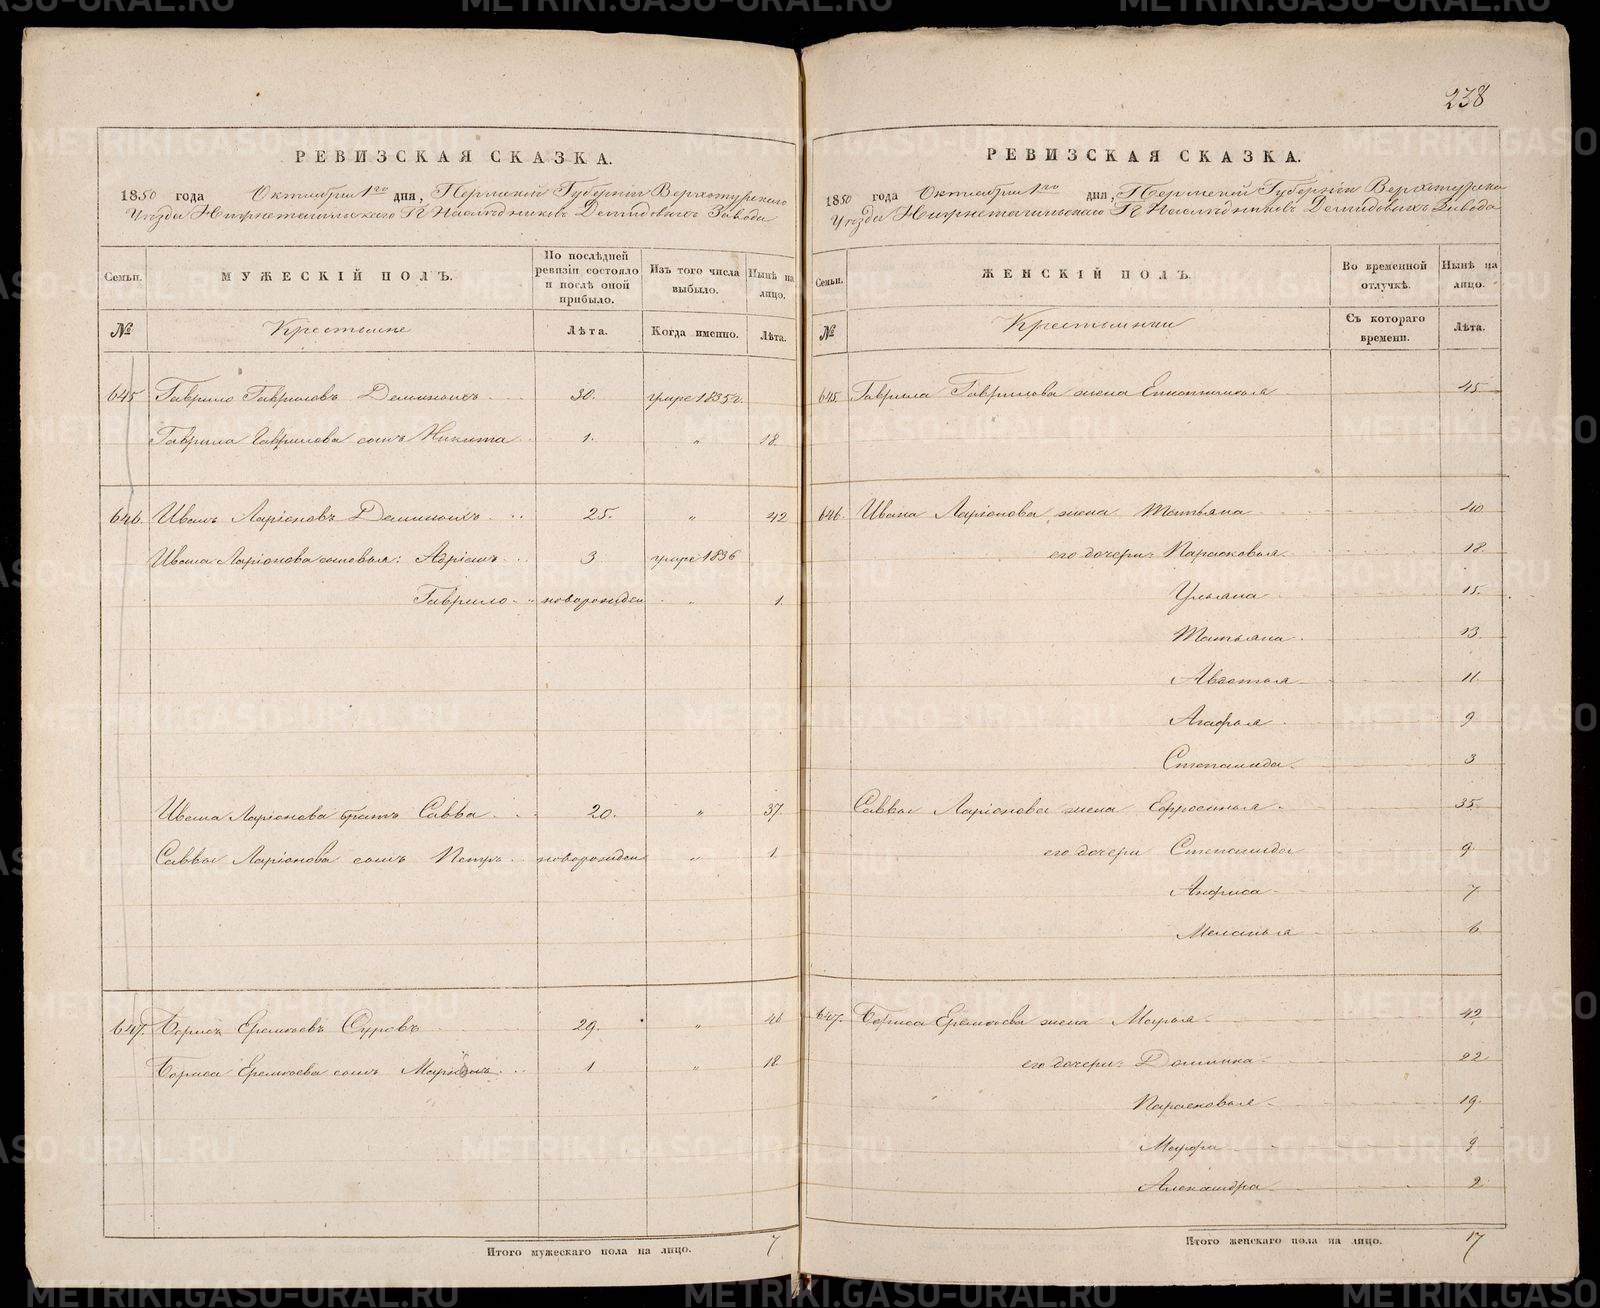 238
РЕВИЗСКАЯ СКАЗКА.
1850 года Октября 1го дня, Пермской Губерніи Верхотурскаго
Уѣзда Нижнетагильскаго Гг Наслѣдниковъ Демидовыхъ Завода
Семьи. МУЖЕСКІЙ ПОЛЪ. По послѣдней ревизіи состояло и послѣ оной прибыло. Изъ того числа выбыло. Нынѣ на лицо.
№ Крестьяне Лѣта. Когда именно. Лѣта.
645. Гаврило Гавриловъ Деминыхъ 30. умре 1835 г.
Гаврила Гаврилова сынъ Никита 1. " 18.
646. Иванъ Ларіоновъ Деминыхъ 25. " 42
Ивана Ларіонова сыновья: Адріанъ 3 умре 1836
Гаврило новорожден " 1.
Ивана Ларіонова братъ Савва 20. " 37.
Саввы Ларіонова сынъ Петръ новорожден " 1.
647. Борисъ Еремѣевъ Суровъ 29. " 46
Бориса Еремѣева сынъ 1 " 18.
Итого мужескаго пола на лицо. 7
РЕВИЗСКАЯ СКАЗКА.
1850 года Октября 1го дня, Пермской Губерніи Верхотурска
Уѣзда Нижнетагильскаго Гг Наслѣдниковъ Демидовыхъ Завода
Семьи. ЖЕНСКІЙ ПОЛЪ. Во временной отлучкѣ. Нынѣ на лицо.
№ Крестьянки Съ котораго времени. Лѣта.
645. Гаврила Гаврилова жена 45
646. Ивана Ларіонова жена Татьяна 40
его дочери: Парасковья 18.
Ульяна 15.
Татьяна 13.
Авдотья 11.
Агафья 9
Степанида 3
Саввы Ларіонова жена Ефросинья 35.
его дочери Степанида 9.
Анфиса 7
Меланья 6
647. Бориса Еремѣева жена Марья 42
его дочери: Домника 22
Парасковья 19.
Мавра 9
Александра 2
Итого женскаго пола на лицо. 17
METRIKI.GASO-URAL.RU